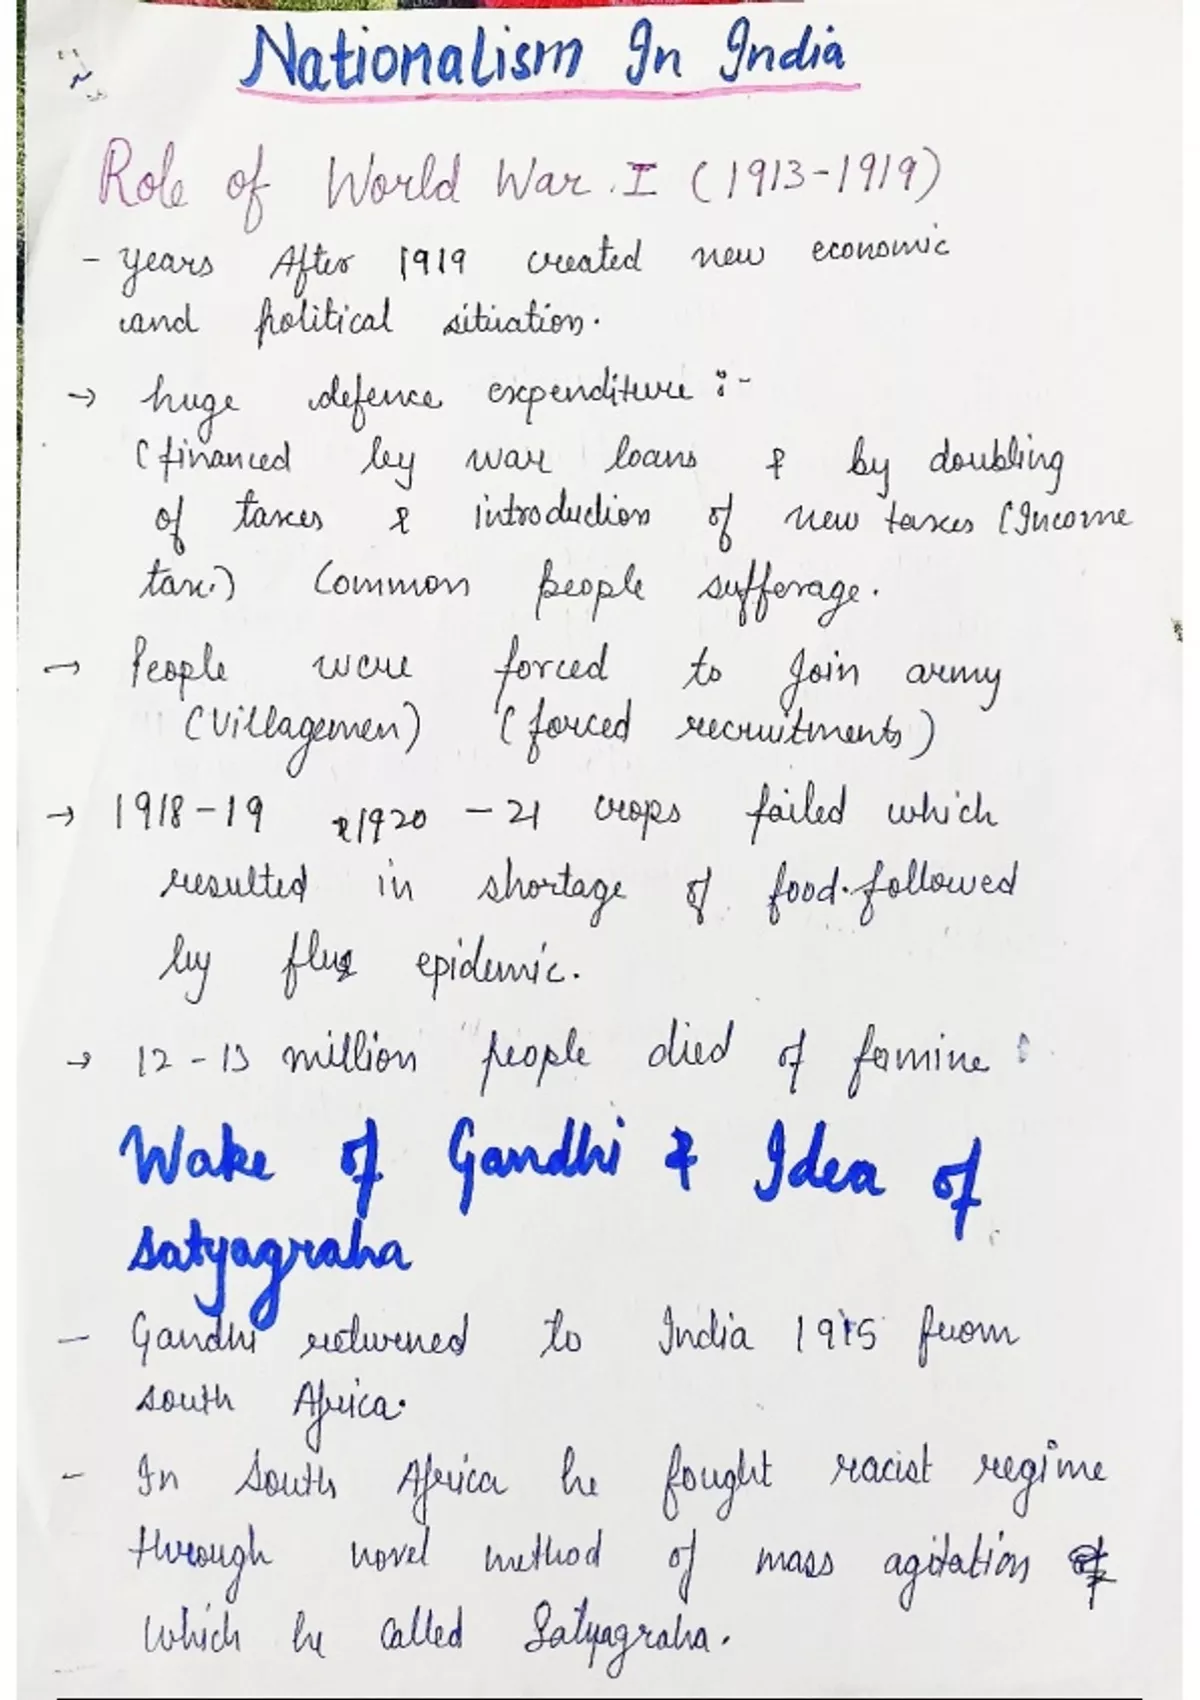 Nationalism In India
Role of World War I (1913-1919)
- years After 1919 created new economic
and political situation.
→ huge defence expenditure :-
(financed by war loans & by doubling
of taxes & introduction of new taxes (Income
tax.) Common people sufferage.
→ People were forced to Join army
(Villagemen) (forced recruitments)
→ 1918-19 & 1920 - 21 crops failed which
resulted in shortage of food. followed
by flu epidemic.
→ 12-13 million people died of famine
Wake of Gandhi & Idea of
satyagraha
- Gandhi returned to India 1915 from
south Africa.
- In South Africa he fought racist regime
through novel method of mass agitation
which he called Satyagraha.